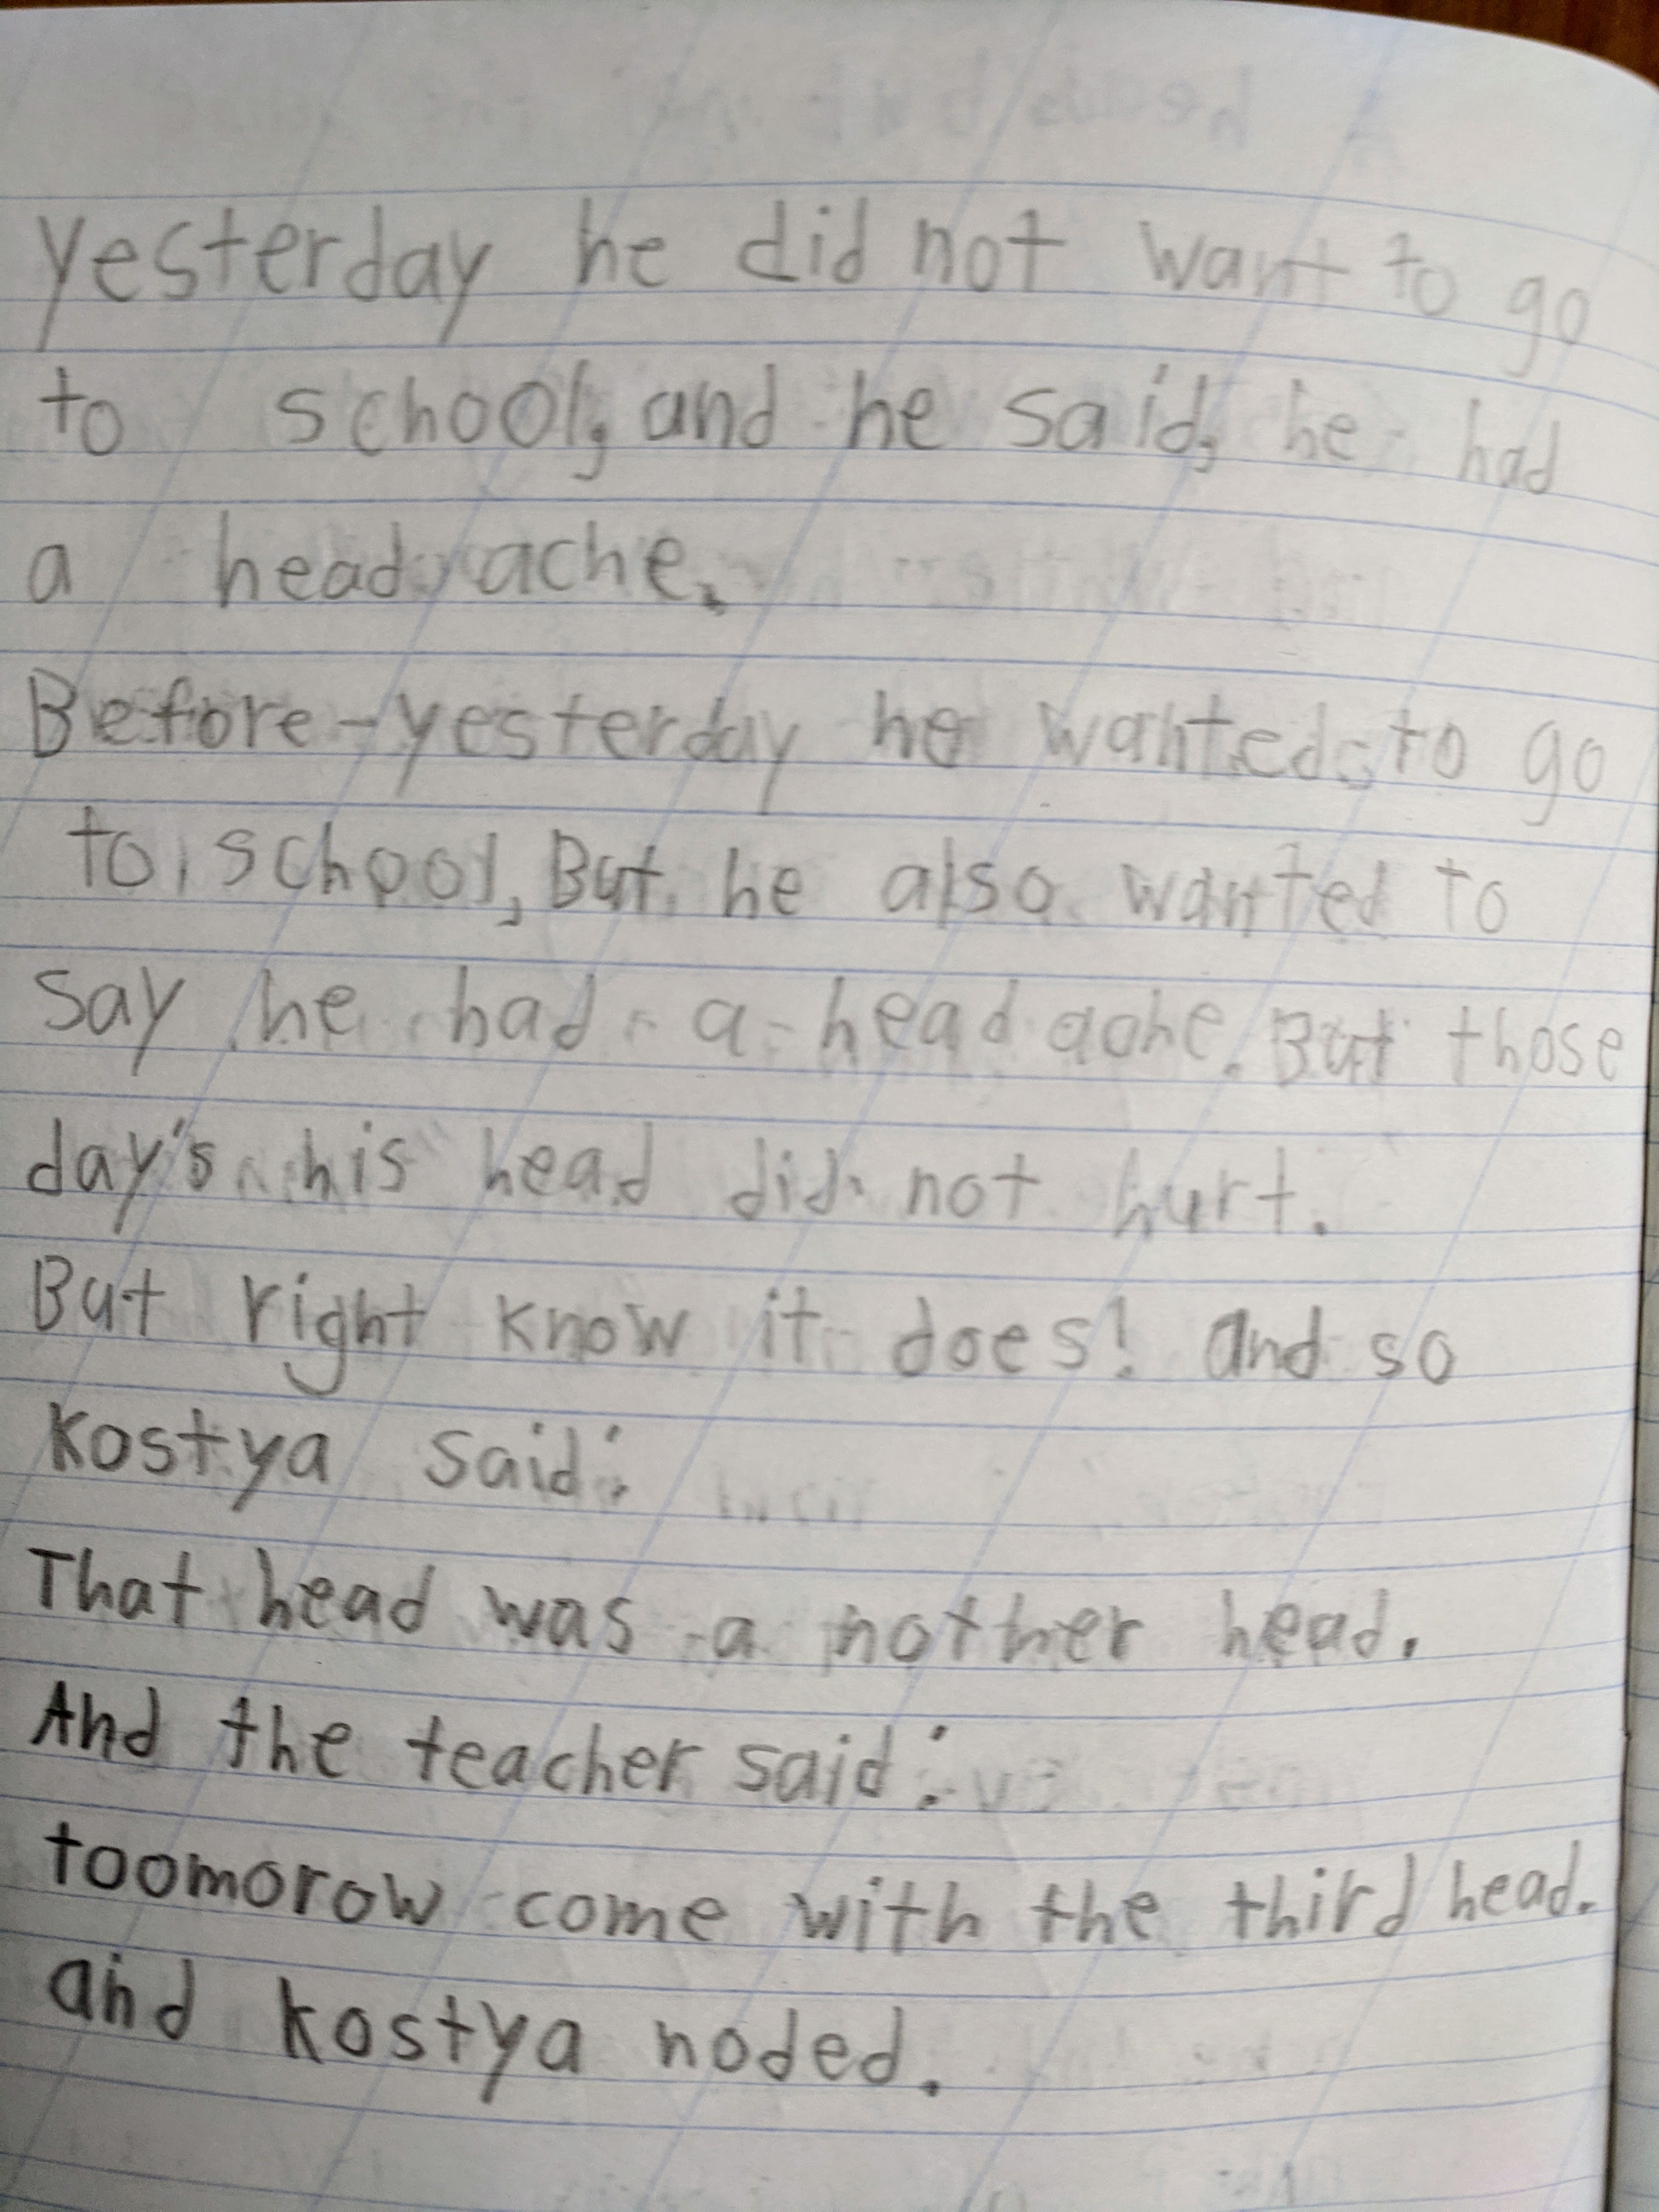 yesterday he did not want to go
to school, and he said, he had
a head ache.
Before-yesterday he wanted to go
to school, But he also wanted to
say he had a head ache. But those
day's his head did not hurt.
But right know it does! and so
Kostya said:
That head was a nother head.
And the teacher said:
toomorow come with the third head.
and kostya noded.